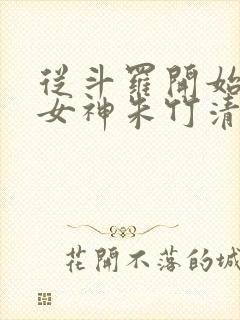 從斗羅開始
女神朱竹清
花開不落的城